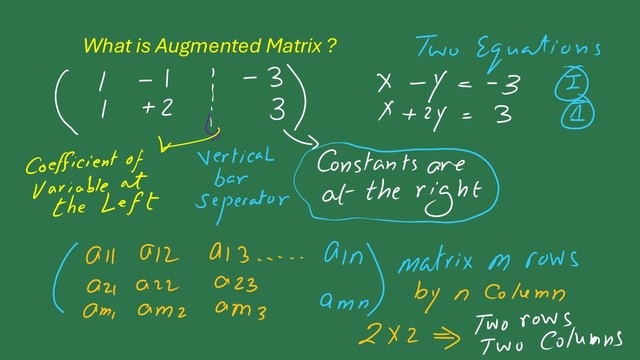 What is Augmented Matrix ?
Two Equations
( 1 - 1 ¦ - 3 )
( 1 + 2 ¦ 3 )
x - y = - 3 I
x + 2y = 3
Coefficient of
Variable at
the Left
Vertical
bar
seperator
Constants are
at the right
( a11 a12 a13 ...... a1n )
a21 a22 a23
am1 am2 am3 amn
matrix m rows
by n Column
2 x 2 ⇒ Two rows
Two Columns